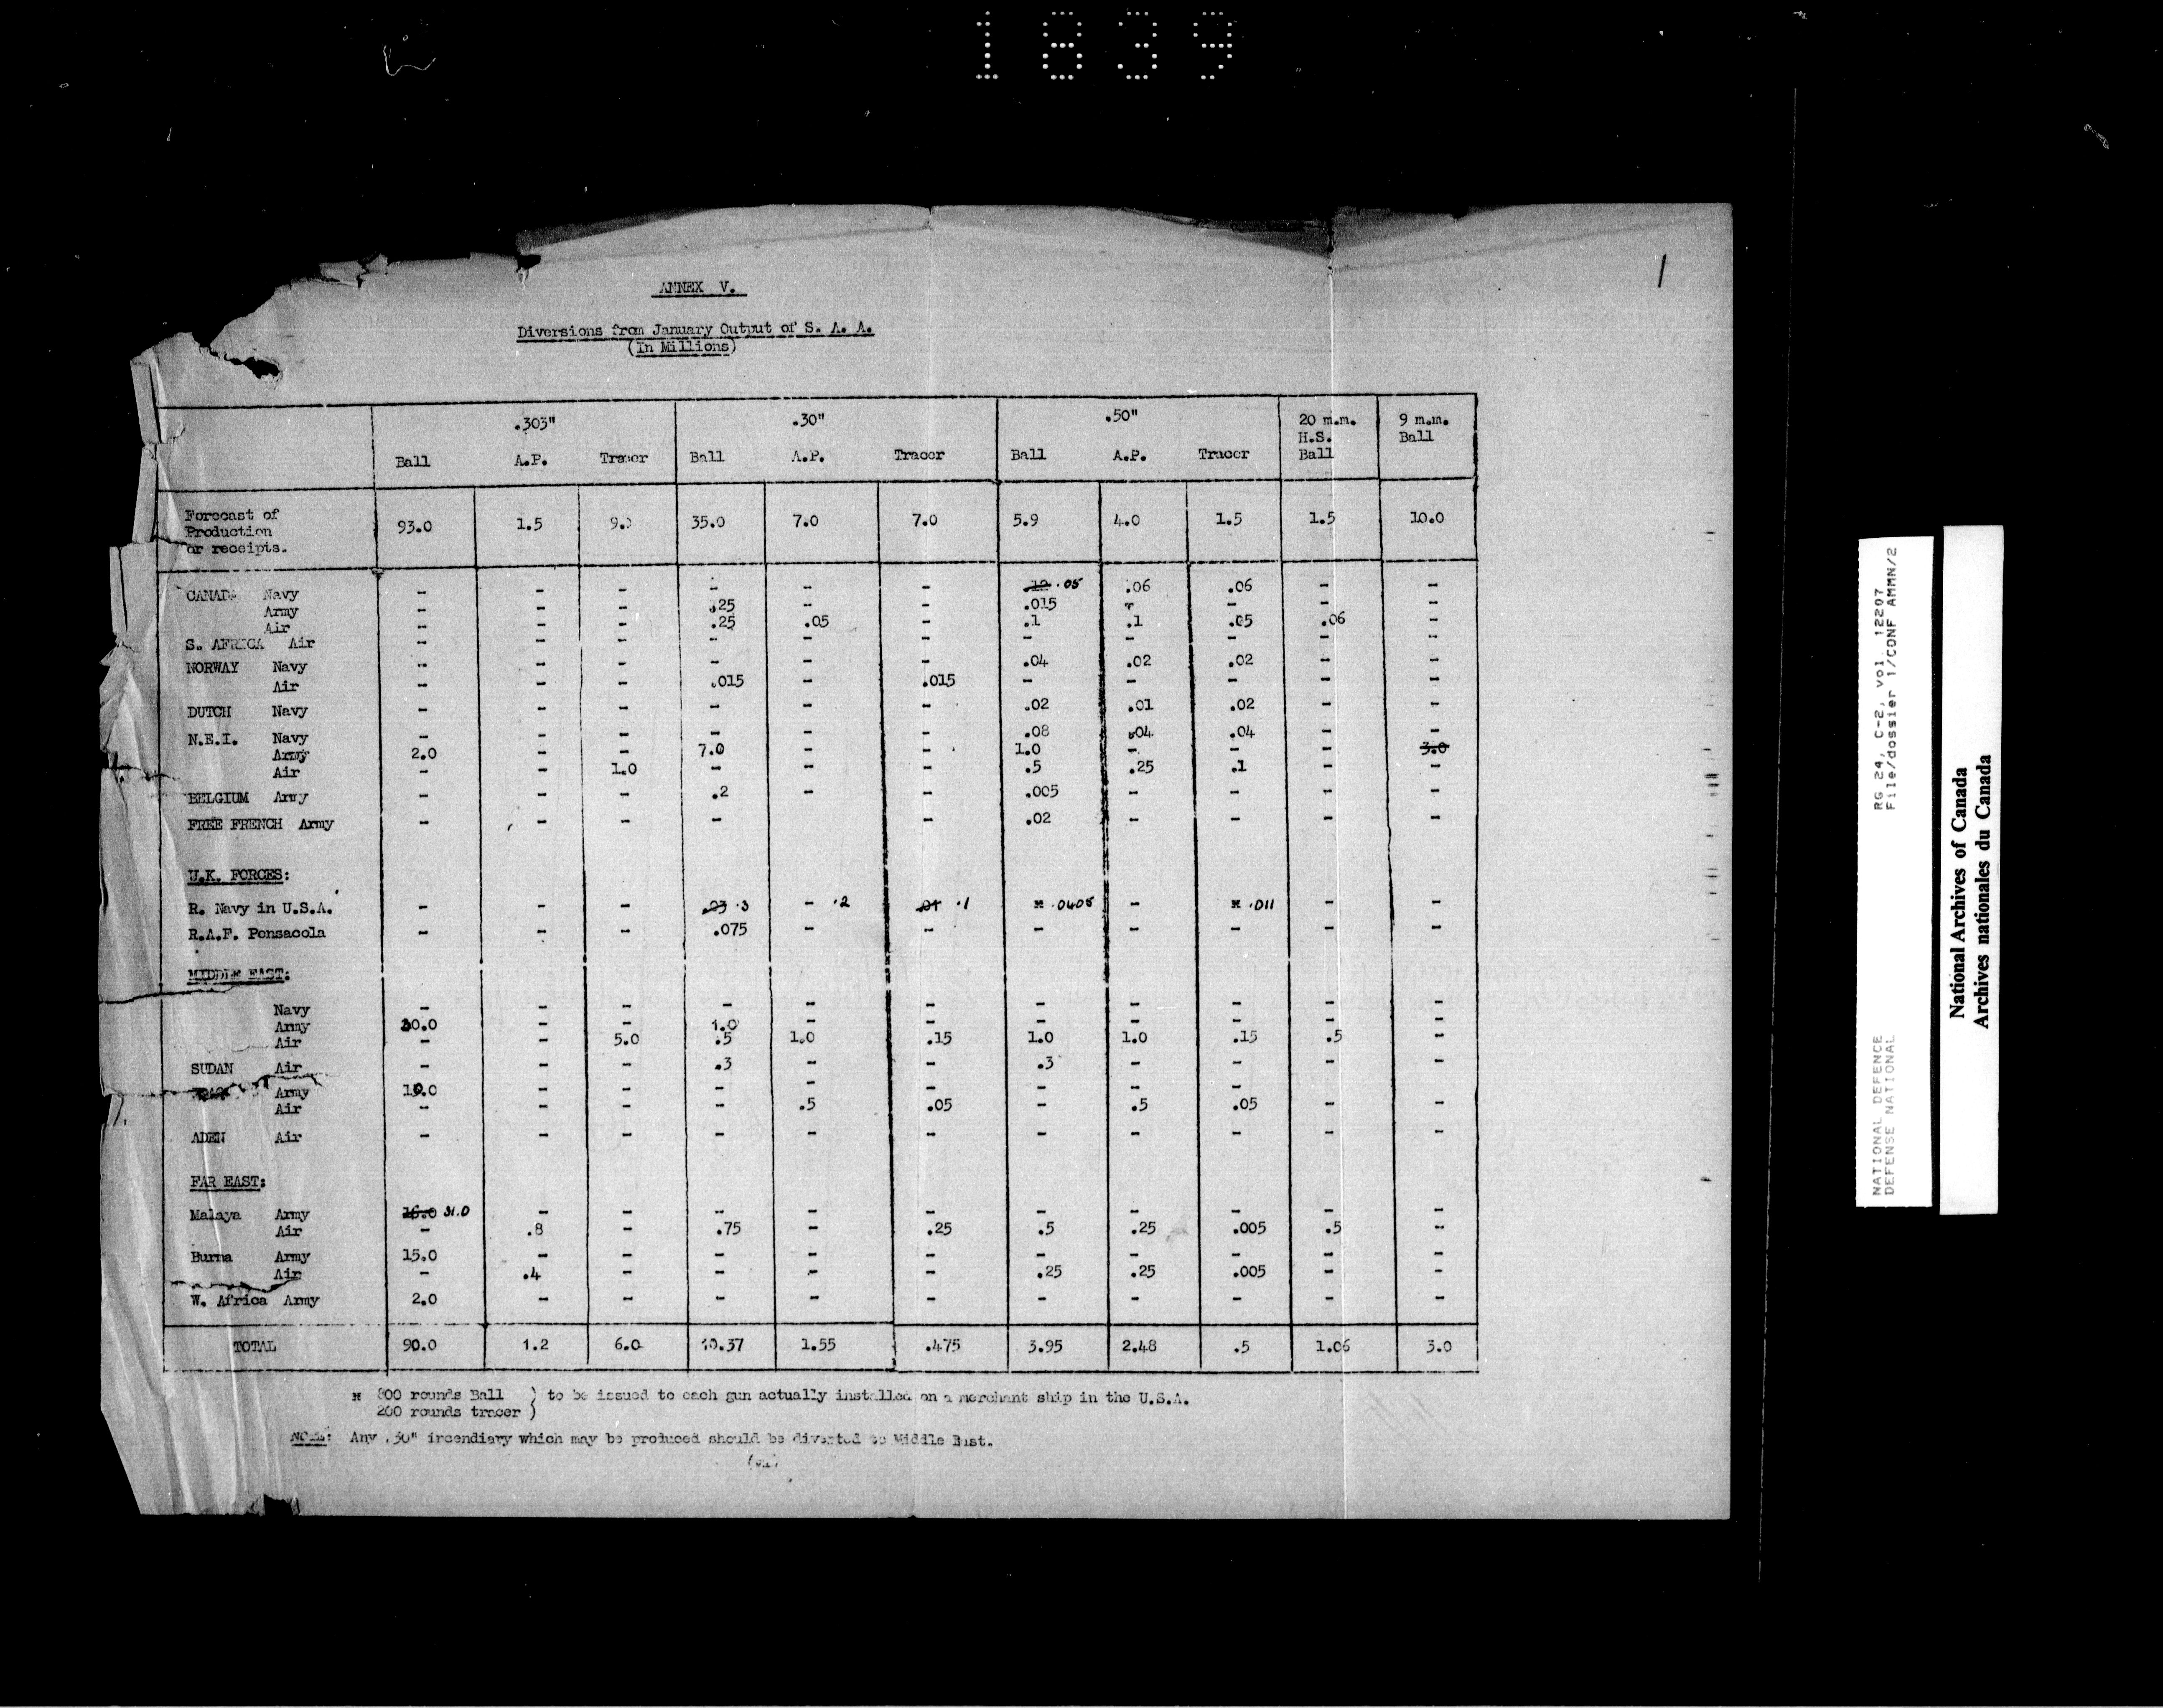 1839
1
ANNEX V.
Diversions from January Output of S. A. A.
(In Millions)
.303" .30" .50" 20 m.m. H.S. Ball 9 m.m. Ball
Ball A.P. Tracer Ball A.P. Tracer Ball A.P. Tracer
Forecast of Production or receipts. 93.0 1.5 9. 35.0 7.0 7.0 5.9 4.0 1.5 1.5 10.0
CANADA Navy - - - - - - .05 .06 .06 - -
Army - - - .25 - - .015 - - - -
Air - - - .25 .05 - .1 .1 .05 .06 -
S. AFRICA Air - - - - - - - - - - -
NORWAY Navy - - - - - - .04 .02 .02 - -
Air - - - .015 - .015 - - - - -
DUTCH Navy - - - - - - .02 .01 .02 - -
N.E.I. Navy - - - - - - .08 .04 .04 - -
Army 2.0 - - 7.0 - - 1.0 - - - 3.0
Air - - 1.0 - - - .5 .25 .1 - -
BELGIUM Army - - - .2 - - .005 - - - -
FREE FRENCH Army - - - - - .02 - - - -
U.K. FORCES:
R. Navy in U.S.A. - - - .03 .3 - .2 .01 .1 * .0405 - * .011 - -
R.A.F. Pensacola - - - .075 - - - - - - -
MIDDLE EAST:
Navy - - - - - - - - - - -
Army 30.0 - - 1.0 - - - - - - -
Air - - 5.0 .5 1.0 .15 1.0 1.0 .15 .5 -
SUDAN Air - - - .3 - - .3 - - - -
Army 10.0 - - - - - - - - - -
Air - - - - .5 .05 - .5 .05 - -
ADEN Air - - - - - - - - - - -
FAR EAST:
Malaya Army 16.0 31.0 - - - - - - - - - -
Air - .8 - .75 - .25 .5 .25 .005 .5 -
Burma Army 15.0 - - - - - - - - - -
Air - .4 - - - - .25 .25 .005 - -
W. Africa Army 2.0 - - - - - - - - - -
TOTAL 90.0 1.2 6.0 10.37 1.55 .475 3.95 2.48 .5 1.06 3.0
* 800 rounds Ball ) to be issued to each gun actually installed on a merchant ship in the U.S.A.
200 rounds tracer )
NOTE: Any .30" incendiary which may be produced should be diverted to Middle East.
NATIONAL DEFENCE RG 24, C-2, vol. 12207
DEFENSE NATIONAL File/dossier 1/CONF AMMN/2
National Archives of Canada
Archives nationales du Canada